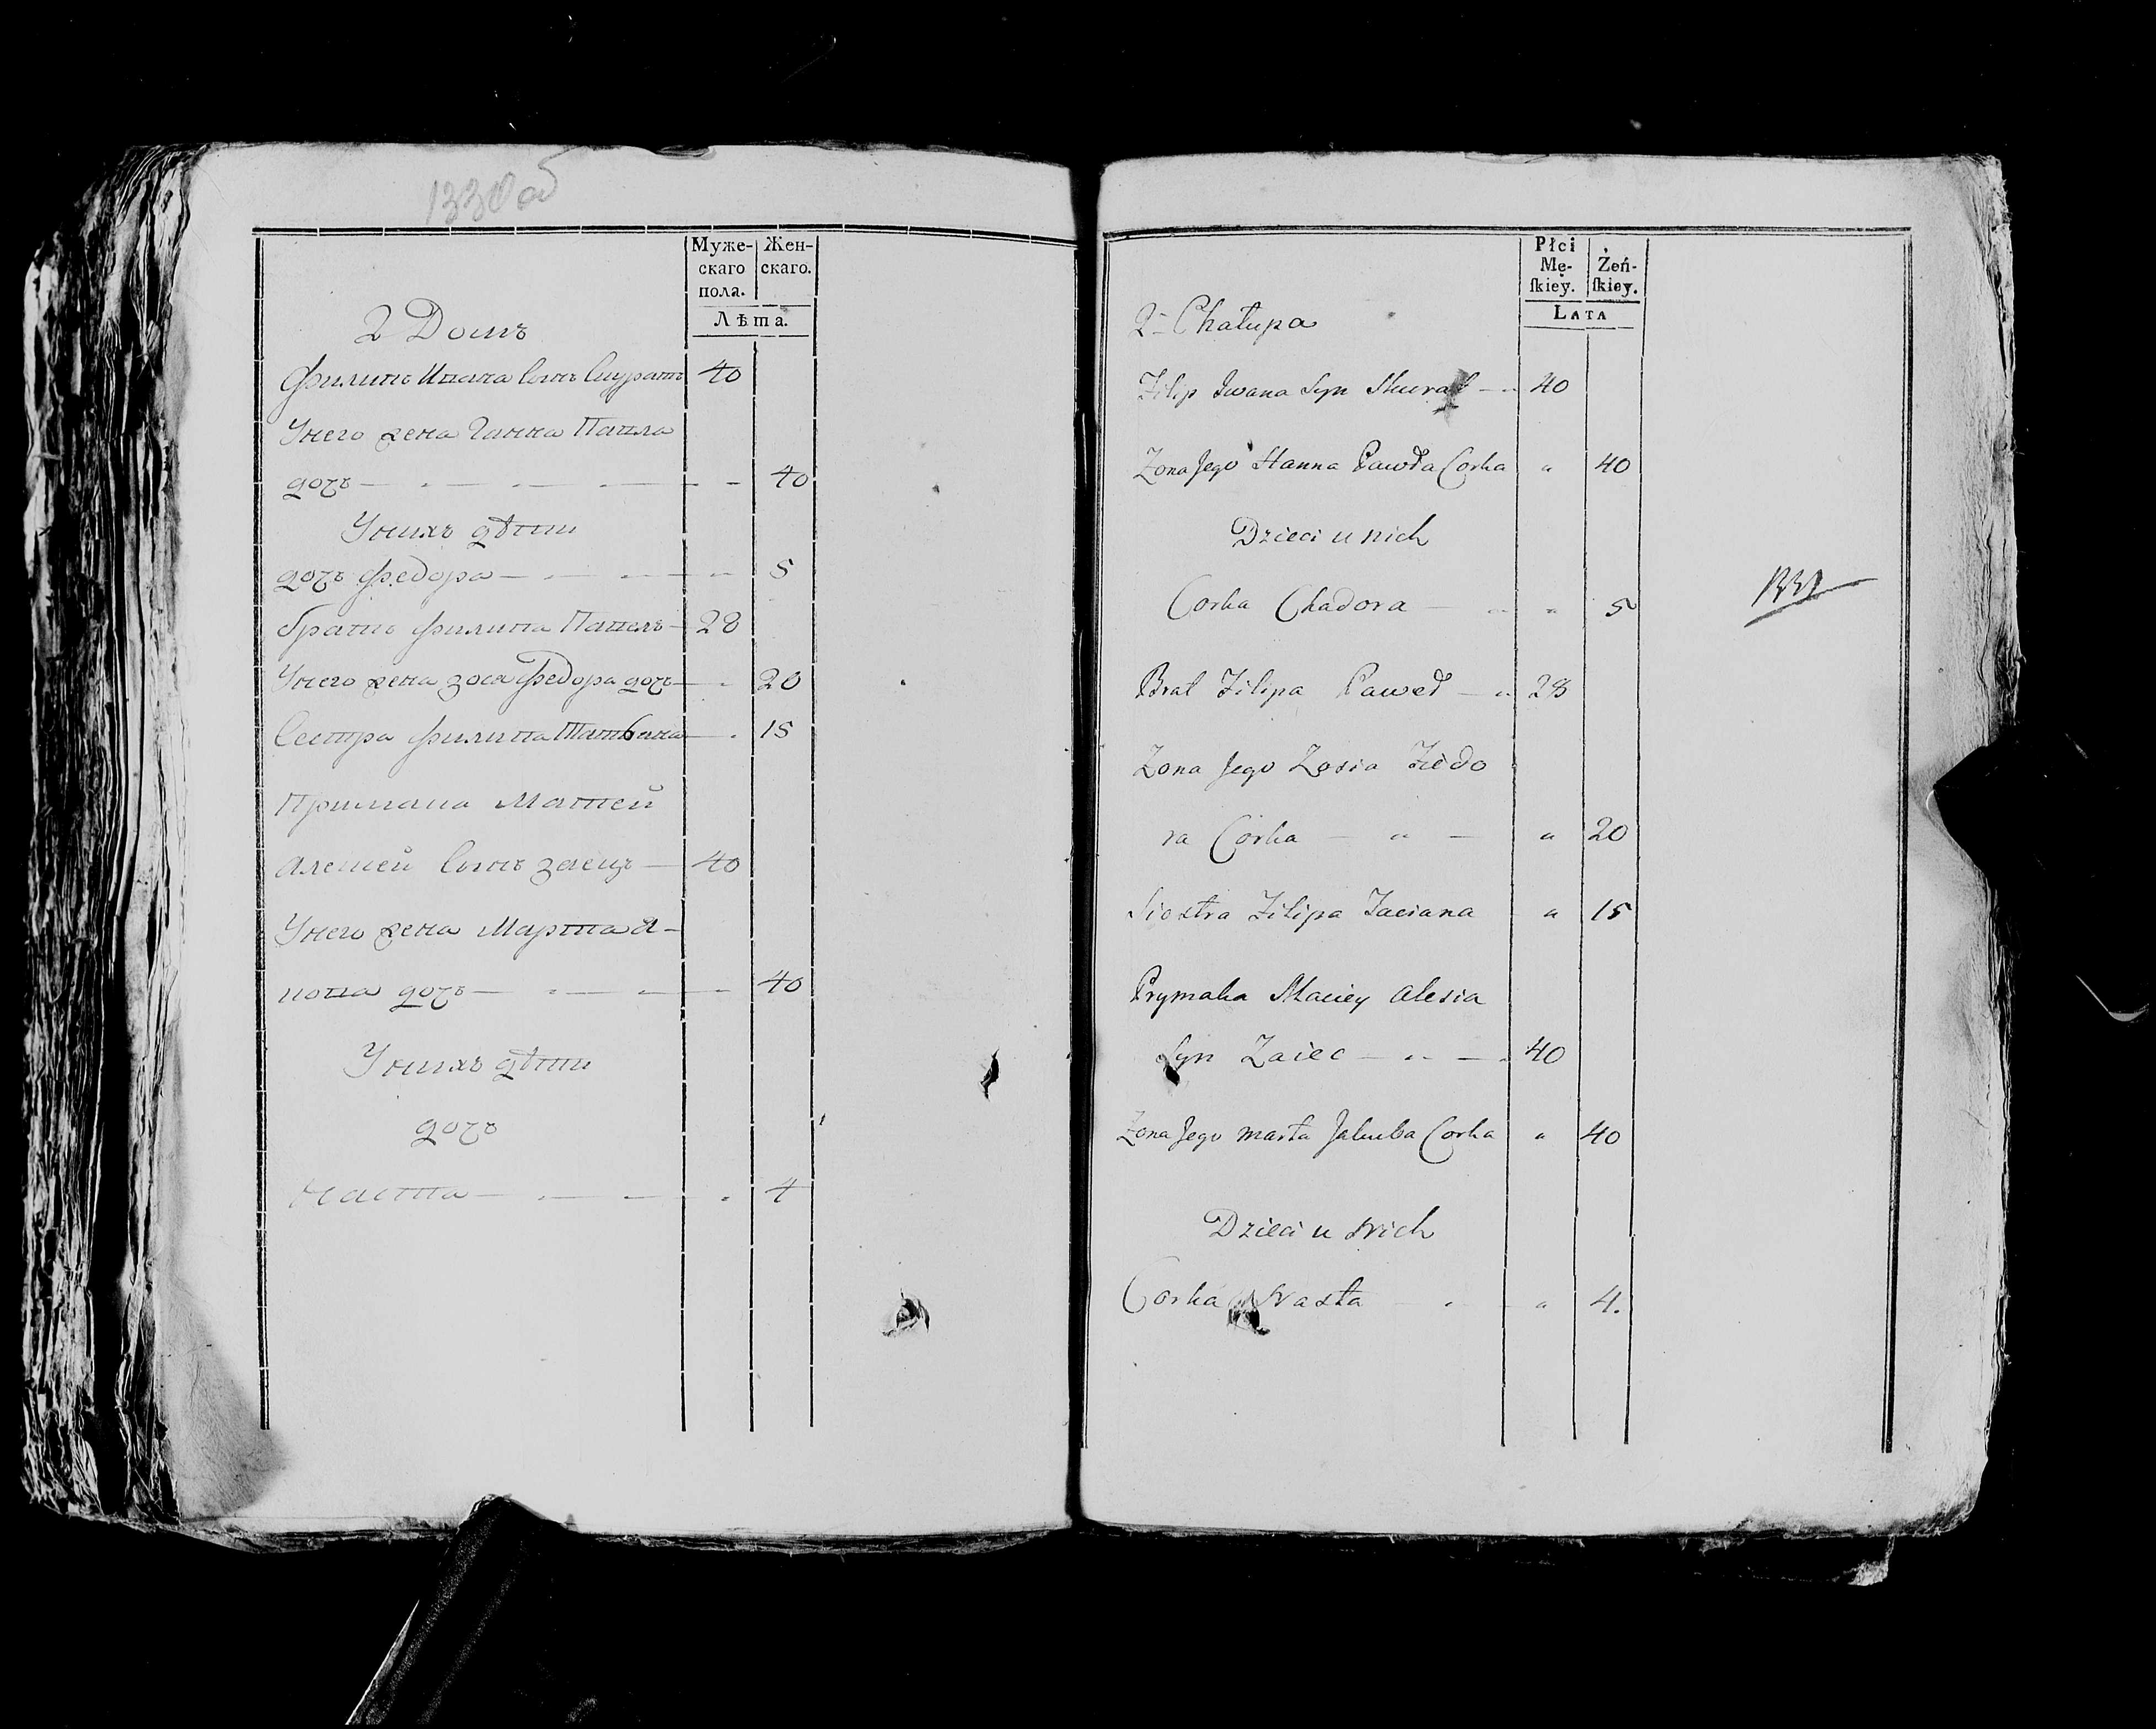 1330 об
Муже-
скаго
пола.
Жен-
скаго.
Лѣта.
2 Домъ
Филипъ Ивана Сынъ Скуратъ 40
Унего жена Ганна Павла
дочь — 40
Унихъ дѣти
дочь Федора — 5
братъ Филипа Павелъ — 28
Унего жена Зося Федора дочь — 20
Сестра Филипа Татьяна — 15
Примака Матей
Алесей Сынъ Заецъ — 40
Унего жена Марта
дочь — 40
Унихъ дѣти
дочь
Наста — 4
Płci
Mę-
ſkiey.
Żeń-
ſkiey.
LATA
2a Chałupa
Filip Iwana Syn Skurat — 40
Zona Jego Hanna Pawła Corka " 40
Dzieci u nich
Corka Chadora — " 5
Brat Filipa Paweł — 28
Zona Jego Zosia Fiedo
ra Corka — " — " 20
Siostra Filipa Taciana " 15
Prymaka Maciey Alesia
Syn Zaiec — 40
Zona Jego Marta Jakuba Corka " 40
Dzieci u Nich
Corka Nasta " 4.
1331